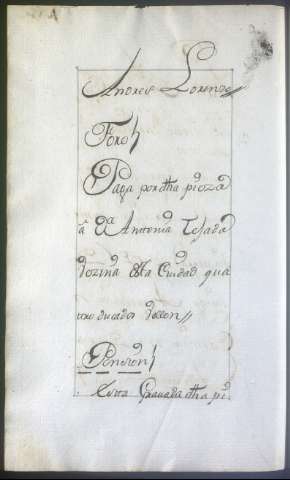 Andres Lorenzo
Foro
Paga por dha pieza
a Da Antonia Tejada
Vezina desta Ciudad qua
tro ducados Vellon
Pension
Esta Gravada dha pie